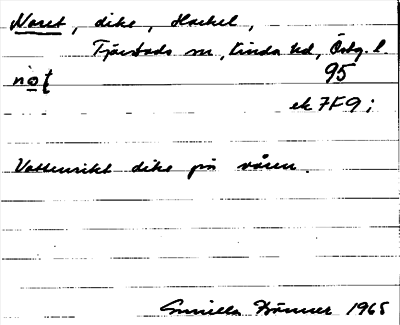 Noret, dike, Hackel,
Tjärstads sn, Kinda hd, Östg. l.
nòt 95
ek 7F9i
Vattenrikt dike på våren.
Gunilla Brämer 1965